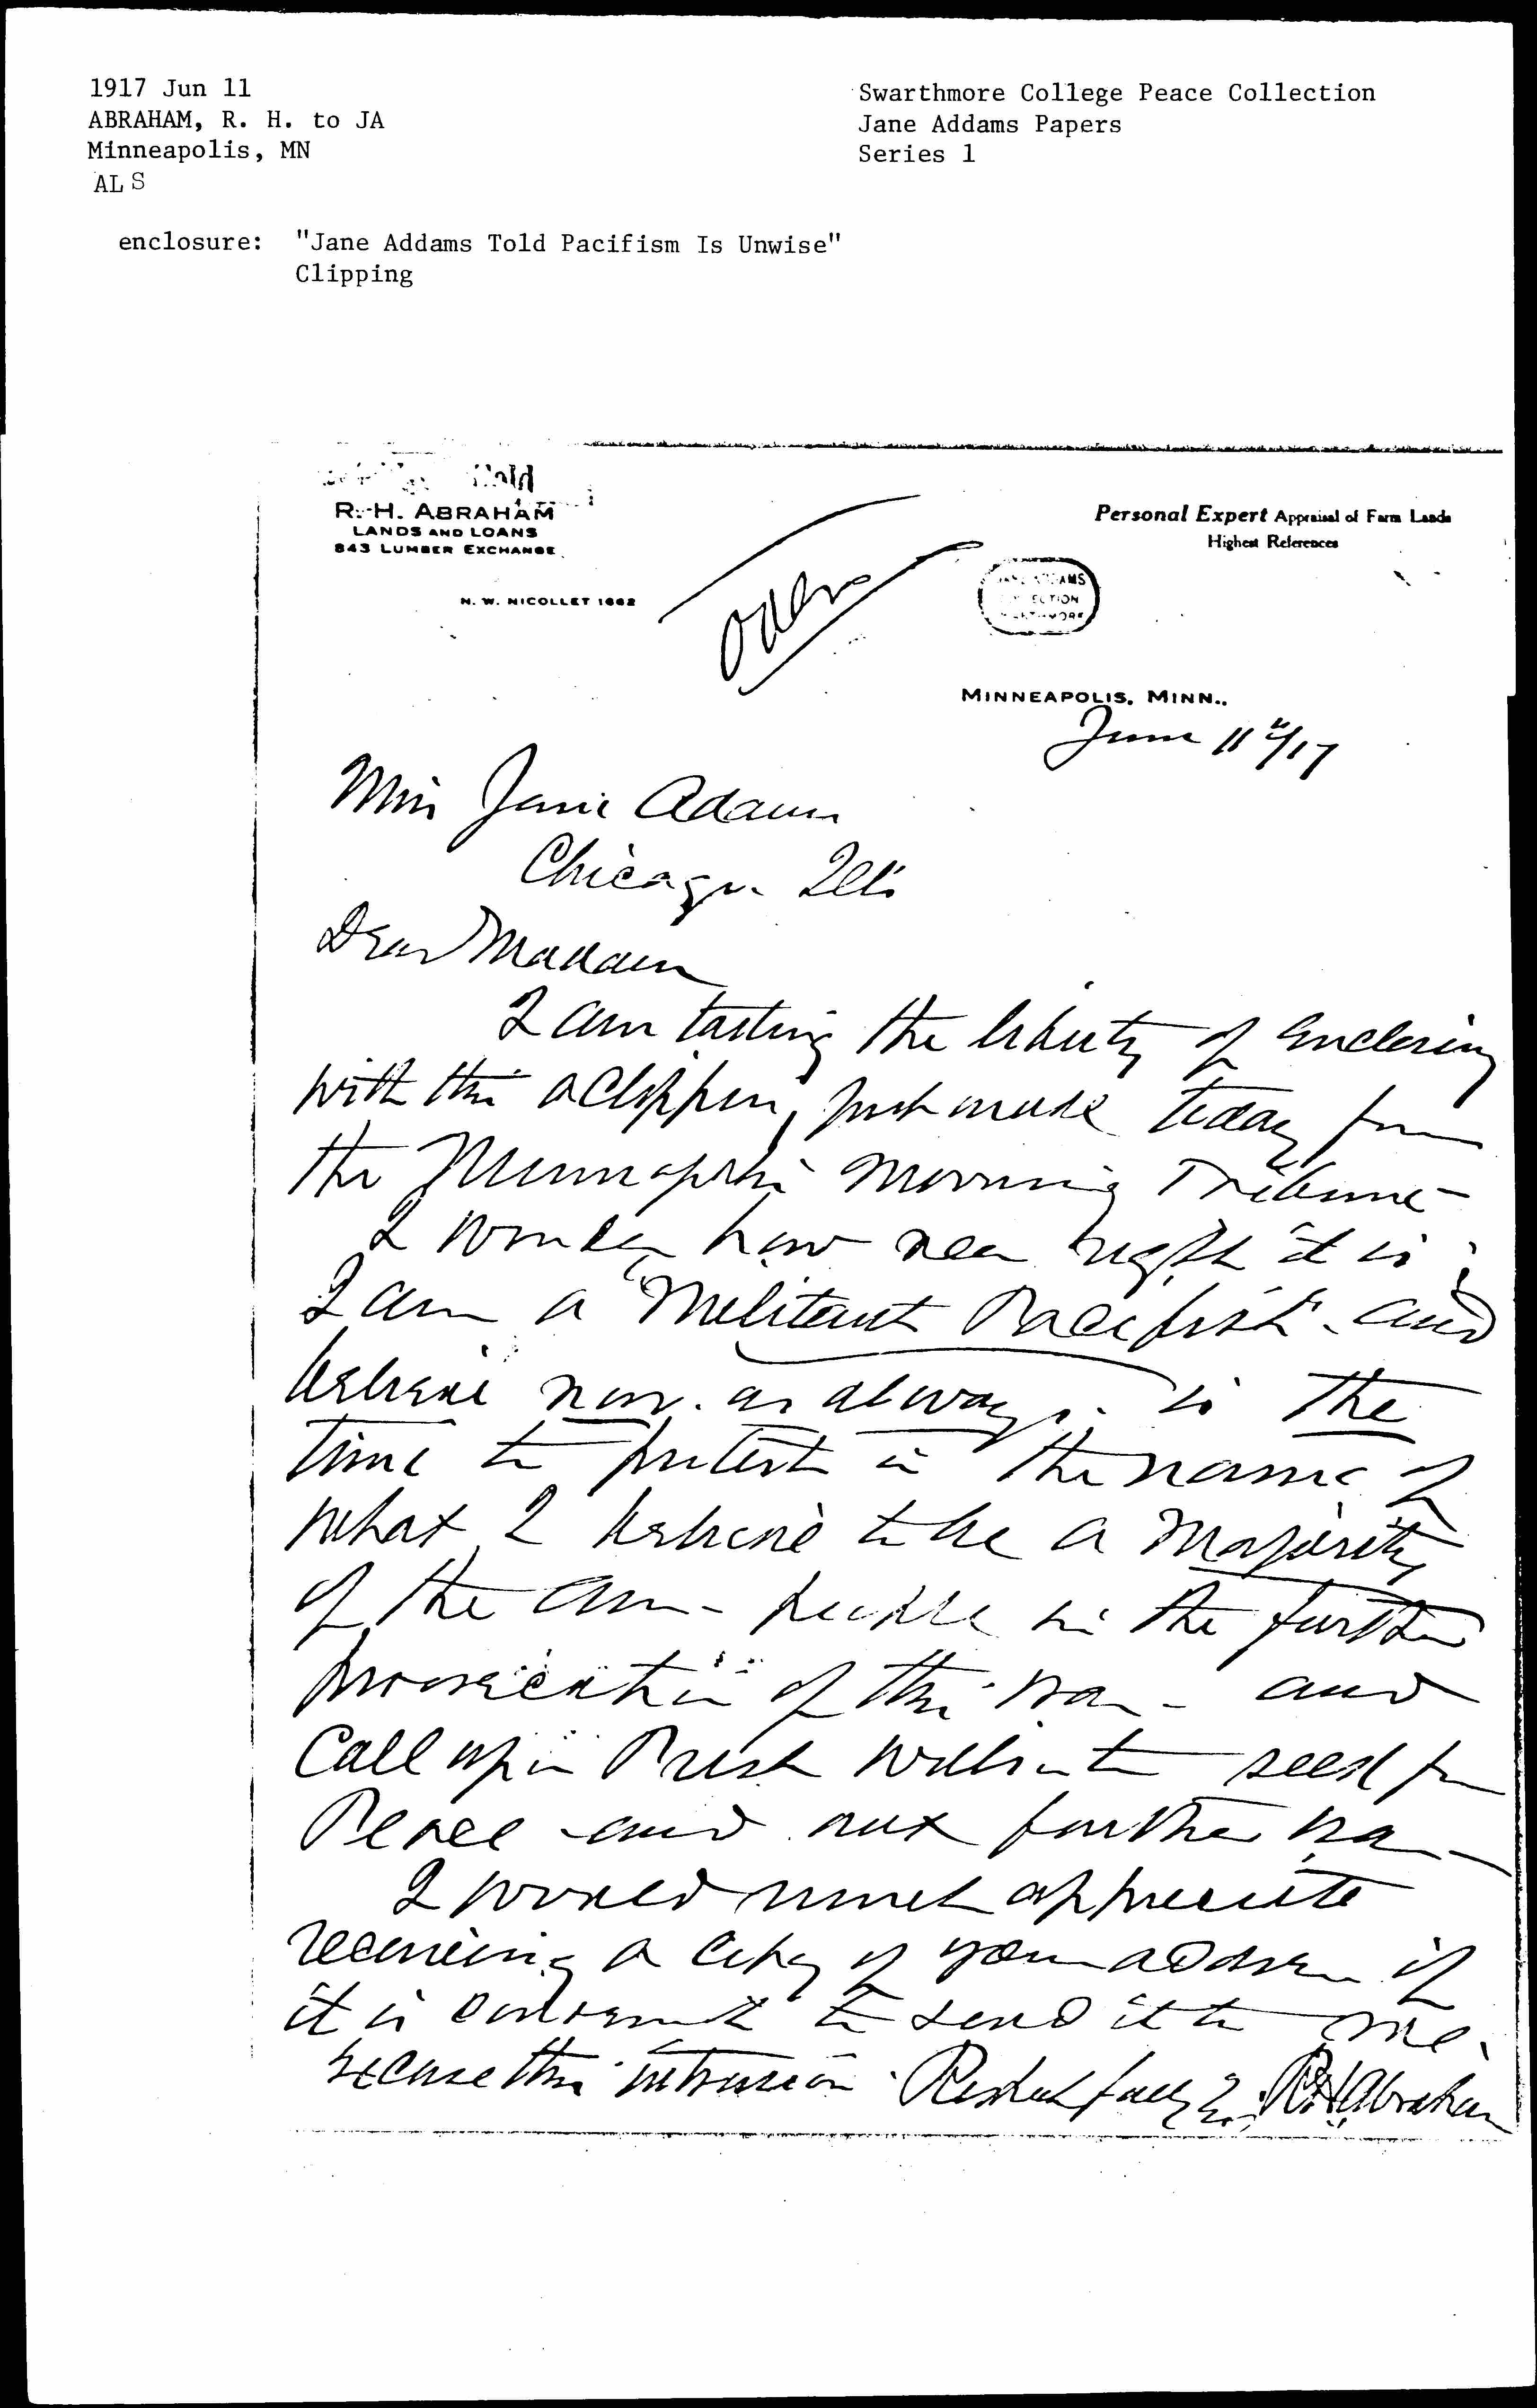 1917 Jun 11
ABRAHAM, R. H. to JA
Minneapolis, MN
ALS
Swarthmore College Peace Collection
Jane Addams Papers
Series 1
enclosure: "Jane Addams Told Pacifism Is Unwise"
Clipping
R. H. ABRAHAM
LANDS AND LOANS
843 LUMBER EXCHANGE
N. W. NICOLLET 1662
Personal Expert Appraisal of Farm Lands
Highest References
JANE ADDAMS
COLLECTION
SWARTHMORE
MINNEAPOLIS, MINN.,
June 11th/17
Miss Jane Adams
Chicago Ills
Dear Madam
I am taking the liberty of enclosing
with this a clipping just made today from
the Minneapolis Morning Tribune –
I wonder how near right it is;
I am a "Militant Pacifist" – and
believe now – as always – is the
time to protest in the name of
what I believe to be a majority
of the Am – people in the further
prosecution of this war – and
Call upon Prest Wilson to seek for
Peace – and not further war –
I would much appreciate
receiving a copy of your address if
it is convenient to send it to me.
excuse this intrusion. Respectfully RH Abraham